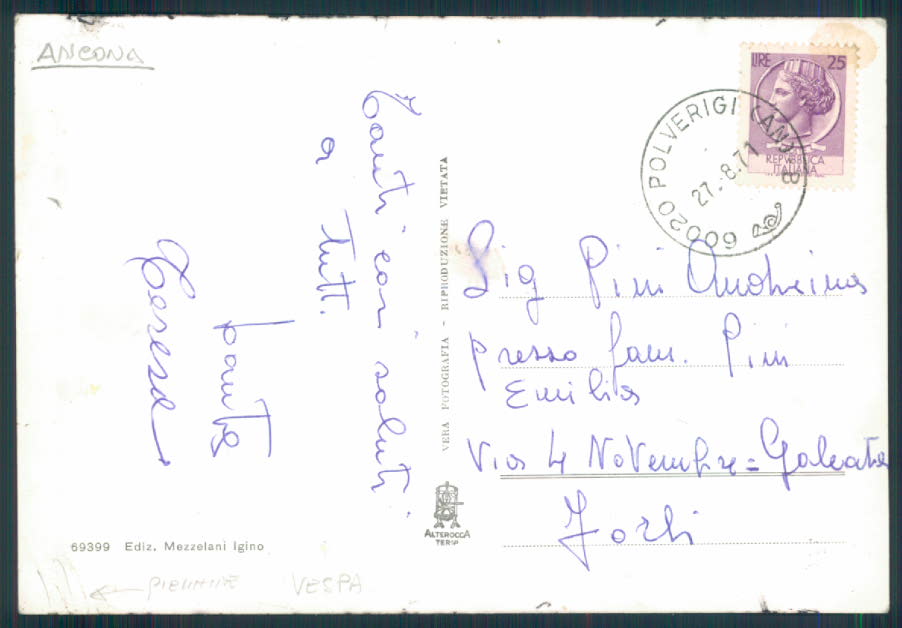 ANCONA
Tanti cari saluti
a tutti.
Santa
Teresa
VERA FOTOGRAFIA - RIPRODUZIONE VIETATA
LIRE 25
REPVBBLICA
ITALIANA
60020 POLVERIGI (AN) B
27.8.71
Sig Pini Andreina
presso fam. Pini
Emilia
Via 4 Novembre = Galeata
Forlì
ALTEROCCA
TERNI
69399 Ediz. Mezzelani Igino
VESPA